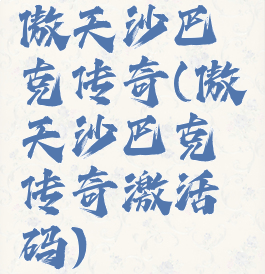 傲天沙巴
克传奇(傲
天沙巴克
传奇激活
码)